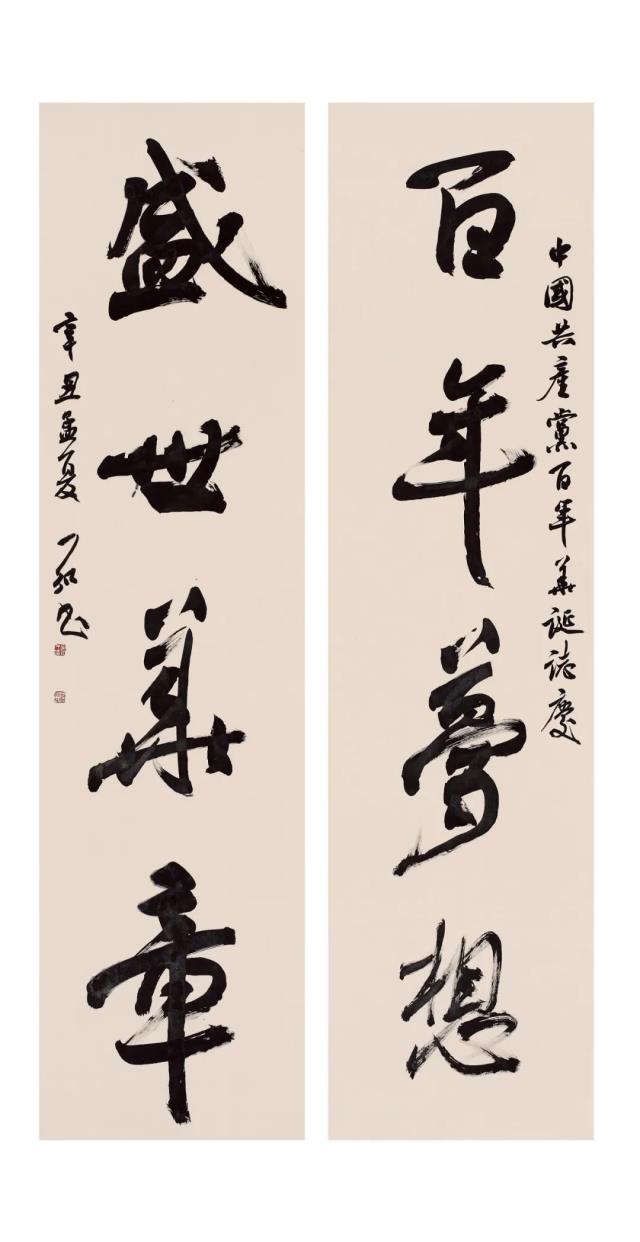 中國共產黨百年華誕誌慶
百年夢想
盛世華章
辛丑孟夏